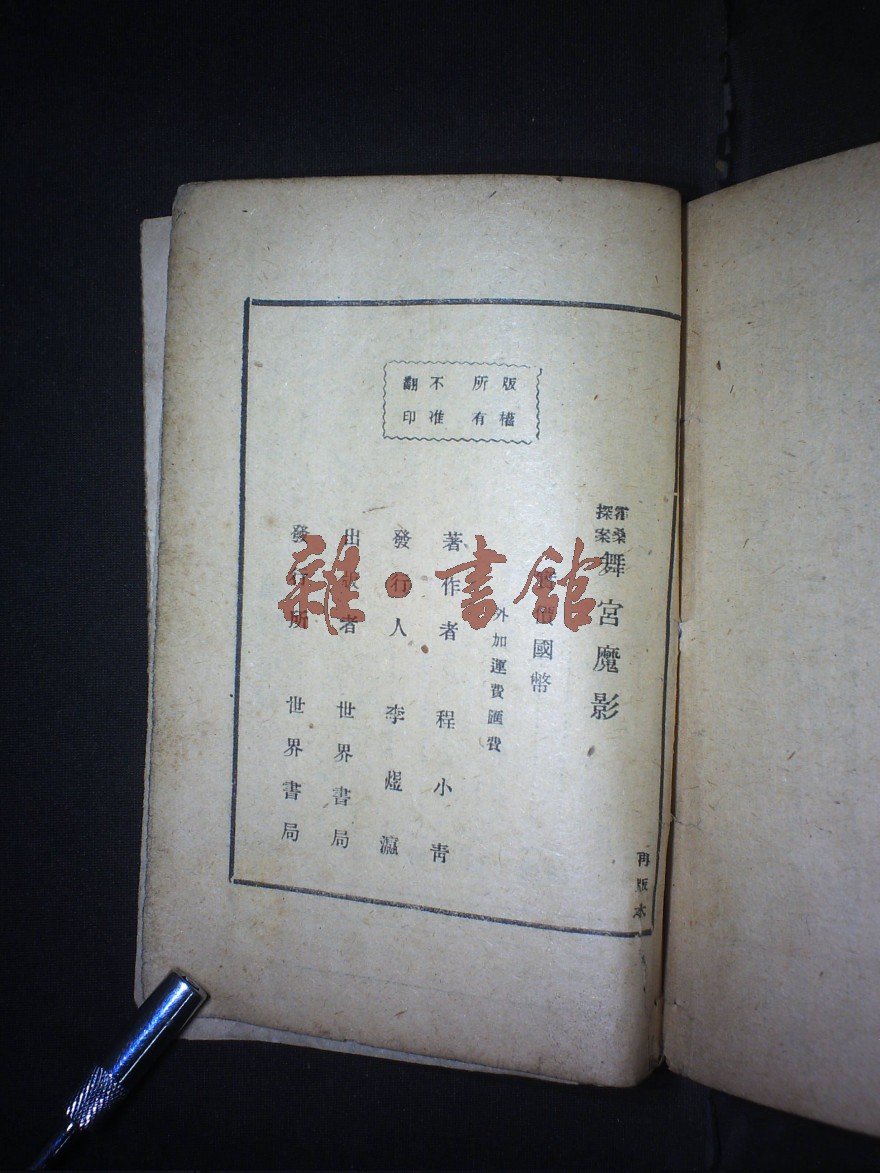 版權所有
不准翻印
霍桑探案
舞宮魔影
實價國幣
外加運費匯費
著作者 程小青
發行人 李煜瀛
出版者 世界書局
發行所 世界書局
再版本
雜·書館